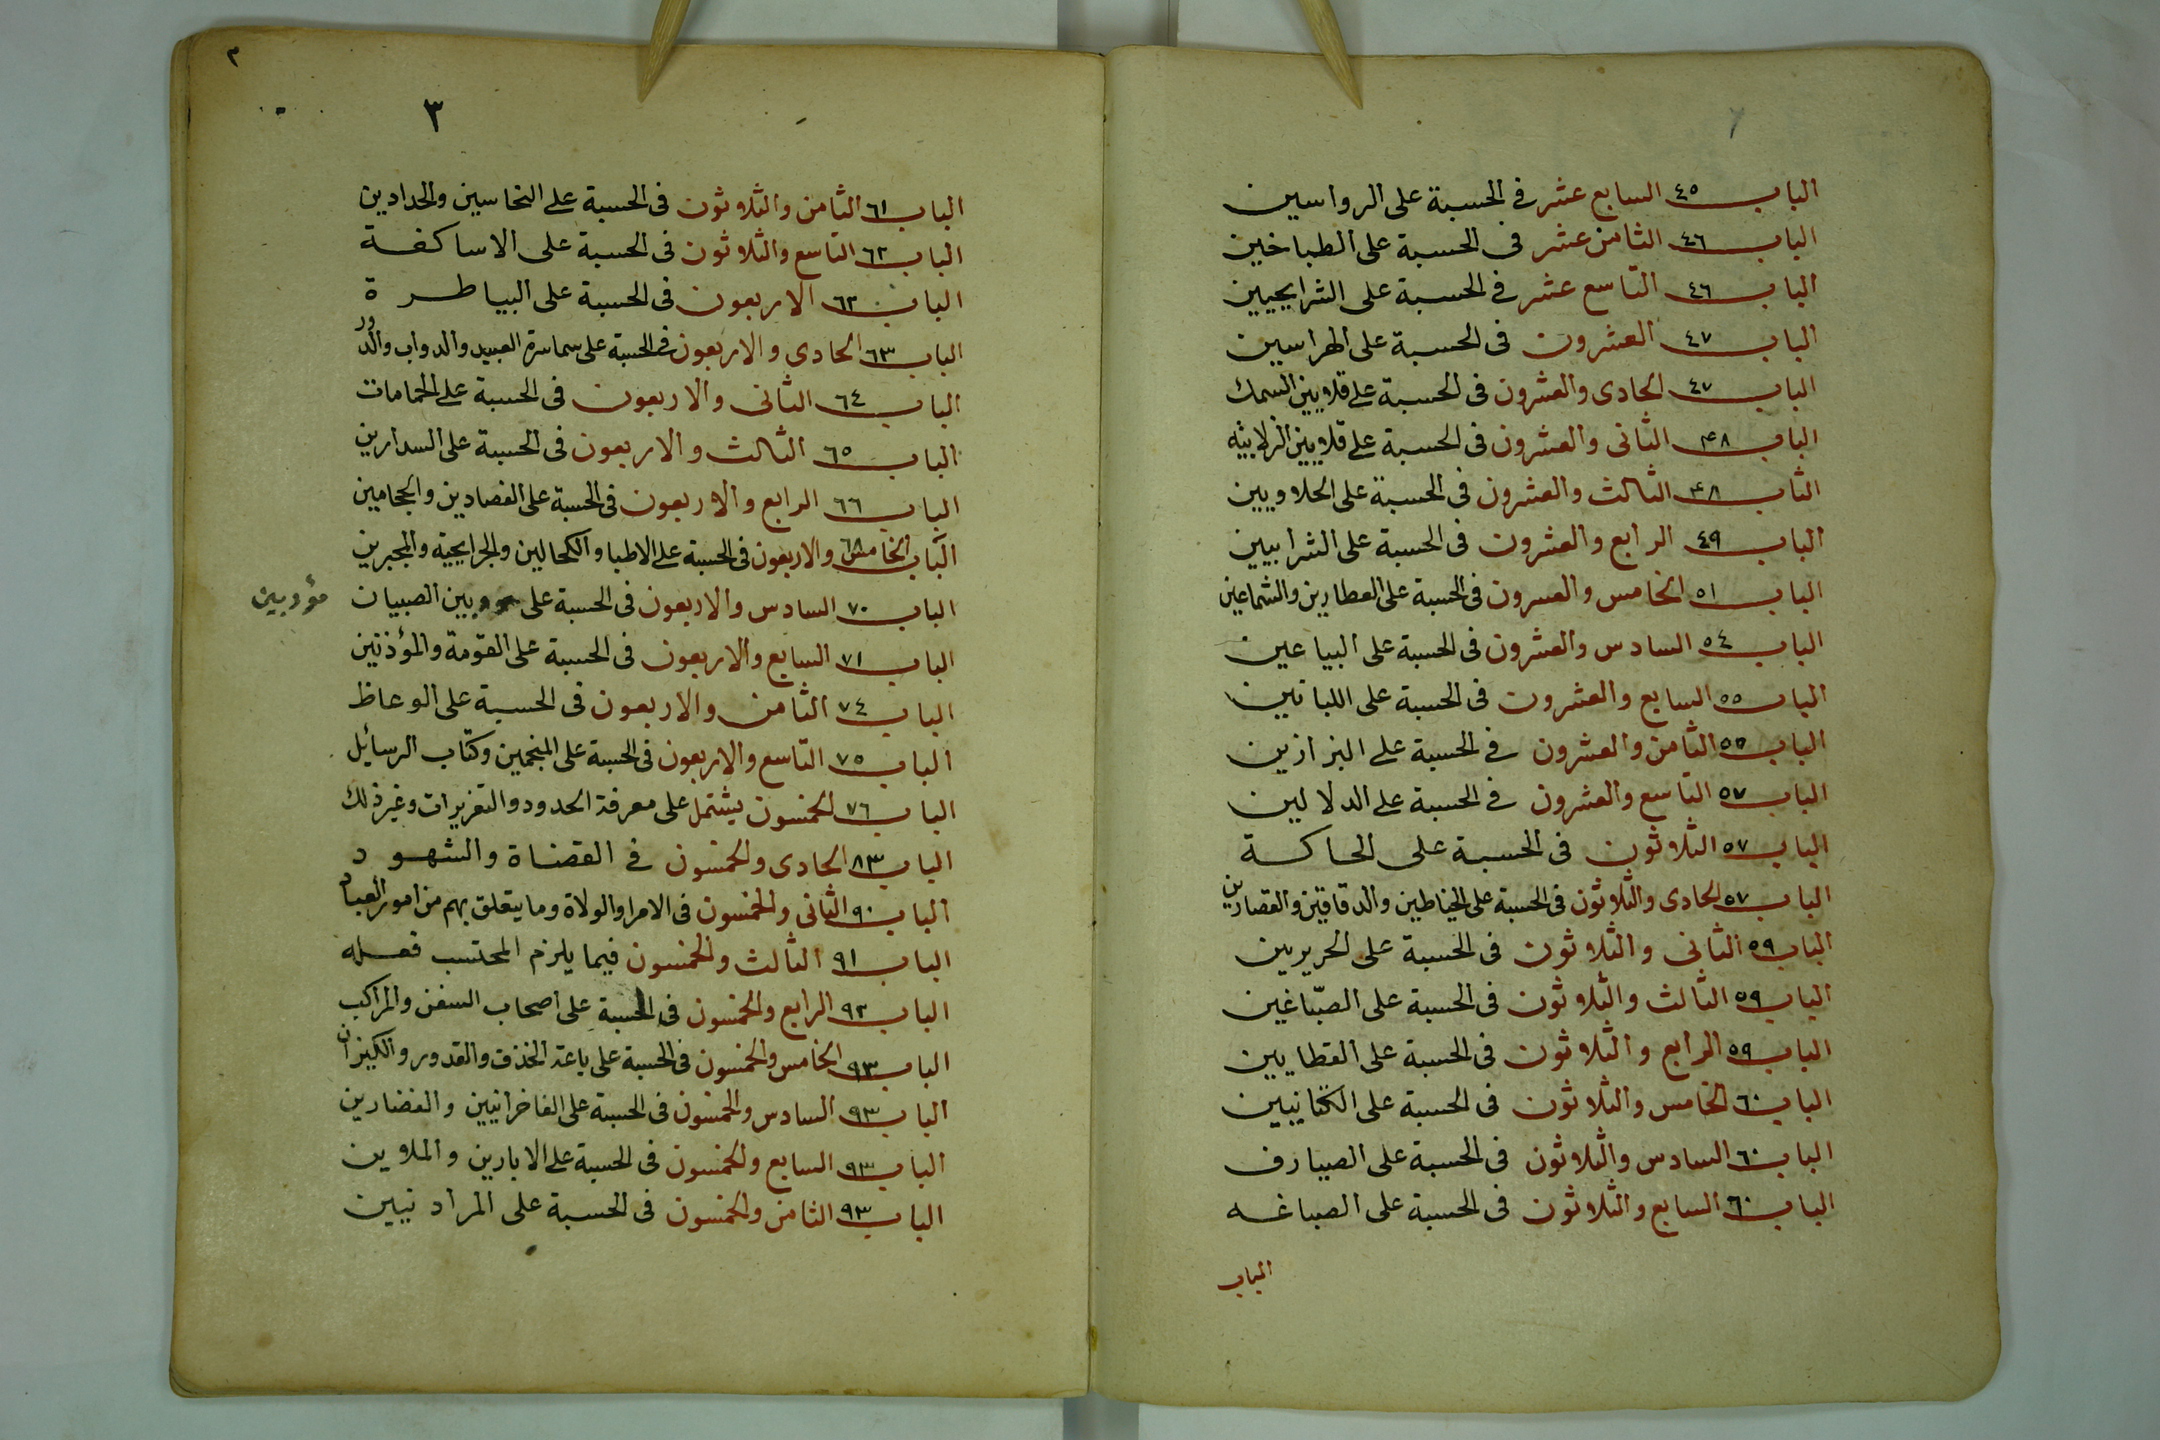 الباب ٤٥ السابع عشر في الحسبة على الرواسين
الباب ٤٦ الثامن عشر في الحسبة على الطباخين
الباب ٤٦ التّاسع عشر في الحسبة على الشرايحيين
الباب ٤٧ العشرون في الحسبة على الهراسين
الباب ٤٧ الحادى والعشرون في الحسبة على قلايين السمك
الباب ۴٨ الثانى والعشرون في الحسبة على قلايين الزلابيه
الثاب ۴٨ الثالث والعشرون في الحسبة على الحلاويين
الباب ٤٩ الرابع والعشرون في الحسبة على الشرابيين
الباب ٥١ الخامس والعسرون في الحسبة على العطارين والشماعين
الباب ٥٤ السادس والعشرون في الحسبة على البياعين
الباب ٥٥ السابع والعشرون في الحسبة على اللبانين
الباب ٥٥ الثامن والعشرون في الحسبة على البزازين
الباب ٥٧ التّاسع والعشرون في الحسبة على الدلالين
الباب ٥٧ الثلاثون في الحسبة على الحاكة
الباب ٥٧ الحادى والثلاثون في الحسبة على الخياطين والدقاقين والقصارين
الباب ٥٩ الثانى والثلاثون في الحسبة على الحريريين
الباب ٥٩ الثالث والثلاثون في الحسبة على الصبّاغين
الباب ٥٩ الرابع والثلاثون في الحسبة على القطايين
الباب ٦٠ الخامس والثلاثون في الحسبة على الكتانيين
الباب ٦٠ السادس والثلاثون في الحسبة على الصيارف
الباب ٦٠ السابع والثلاثون في الحسبة على الصباغه
الباب
٣
٣
الباب ٦١ الثامن والثلاثون في الحسبة على النحاسين والحدادين
الباب ٦٢ التاسع والثلاثون في الحسبة على الاساكفة
الباب ٦٢ الاربعون في الحسبة على البياطرة
الباب ٦٣ الحادى والاربعون في الحسبة على سماسرة العبيد والدواب والدور
الباب ٦٤ الثانى والاربعون في الحسبة على الحمامات
الباب ٦٥ الثالث والاربعون في الحسبة على السدارين
الباب ٦٦ الرابع والاربعون في الحسبة على الفصادين والحجامين
الباب ٦٨ الخامس والاربعون في الحسبة على الاطبا والكحالين والجرايحية والمجبرين
الباب ٧٠ السادس والاربعون في الحسبة على الصبيان
مؤدبين
الباب ٧١ السابع والاربعون في الحسبة على القومة والمؤذنين
الباب ٧٤ الثامن والاربعون في الحسبة على الوعاظ
الباب ٧٥ التّاسع والاربعون في الحسبة على المنجمين وكتّاب الرسائل
الباب ٧٦ الخمسون يشتمل على معرفة الحدود والتعزيرات وغير ذلك
الباب ٨٣ الحادى والخمسون في القضاة والشهود
الباب ٩٠ الثانى والخمسون في الامرا والولاة وما يتعلق بهم من امور العباد
الباب ٩١ الثالث والخمسون فيما يلزم المحتسب فعله
الباب ٩٢ الرابع والخمسون في الحسبة على اصحاب السفن والمراكب
الباب ٩٣ الخامس والخمسون في الحسبة على باعة الخذف والقدور والكيزان
الباب ٩٣ السادس والخمسون في الحسبة على الفاخرانيين والغضارين
الباب ٩٣ السابع والخمسون في الحسبة على الابارين والملاوين
الباب ٩٣ الثامن والخمسون في الحسبة على المرادنيين